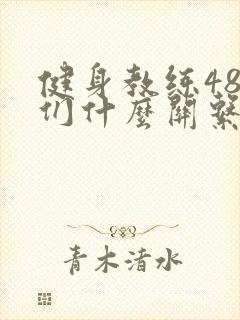 健身教练48
们什麼關繫
青木渚水